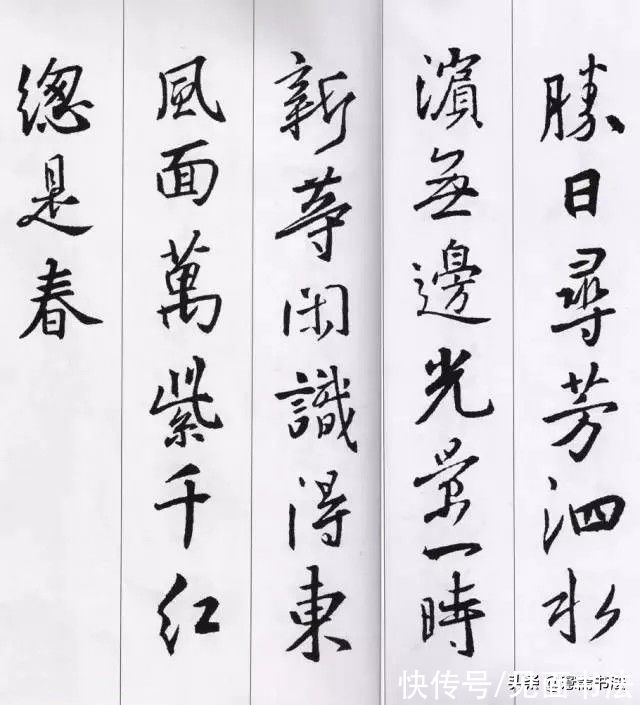 勝日尋芳泗水
濱無邊光景一時
新等閑識得東
風面萬紫千紅
總是春
快传号/